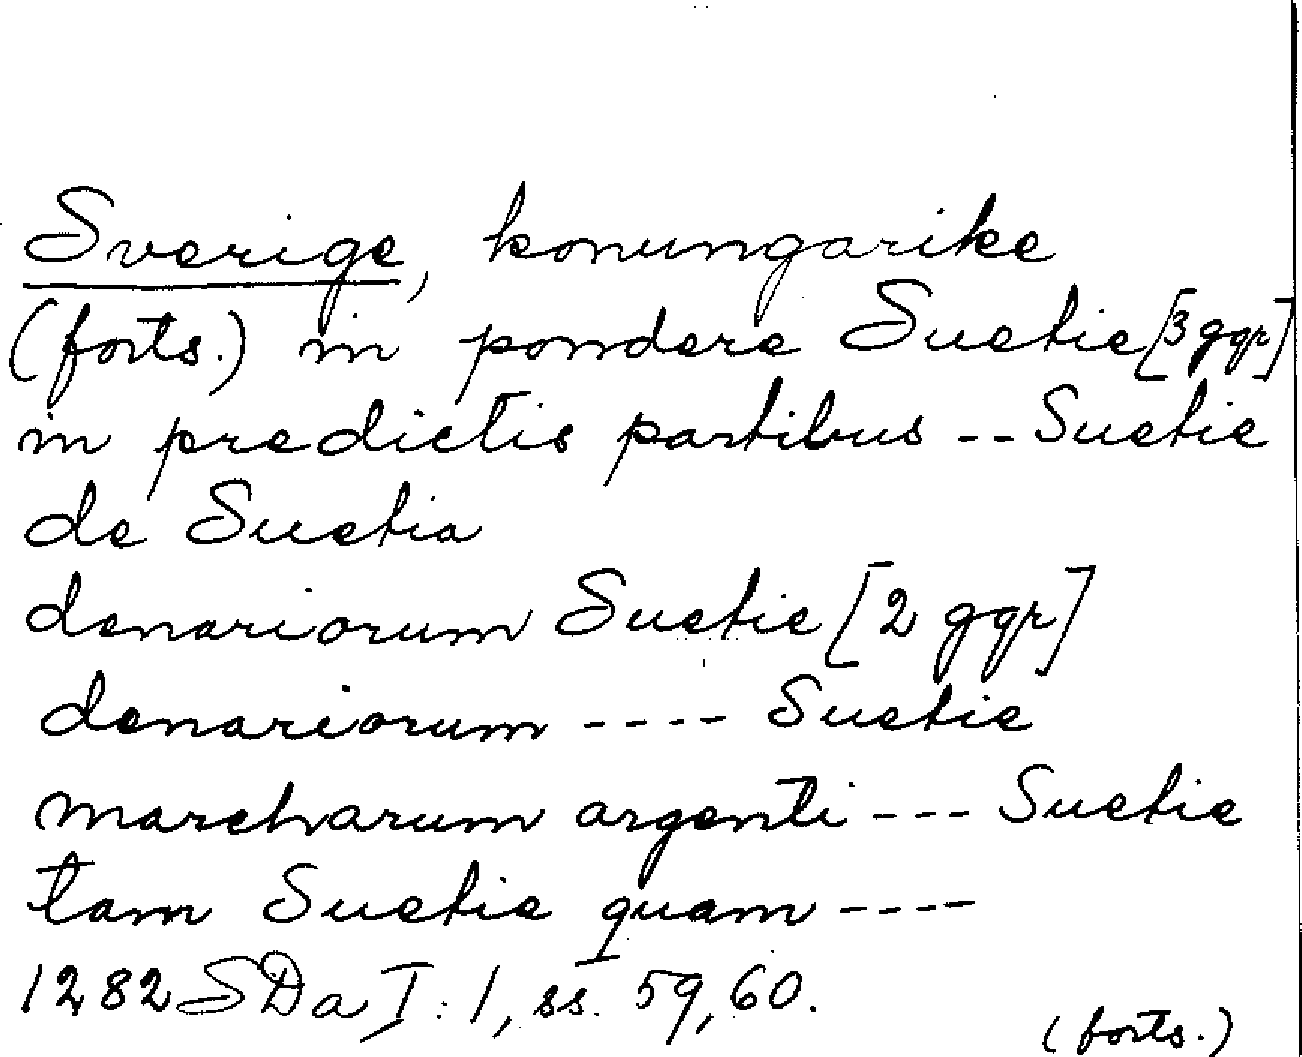 Sverige, konungarike
(forts.) in pondere Suetie [3 ggr]
in predictis partibus -- Suetie
de Suetia
denariorum Suetie [2 ggr]
denariorum ---- Suetie
marcharum argenti --- Suetie
tam Suetie quam ----
1282 SDa I:1, ss. 59, 60.
(forts.)